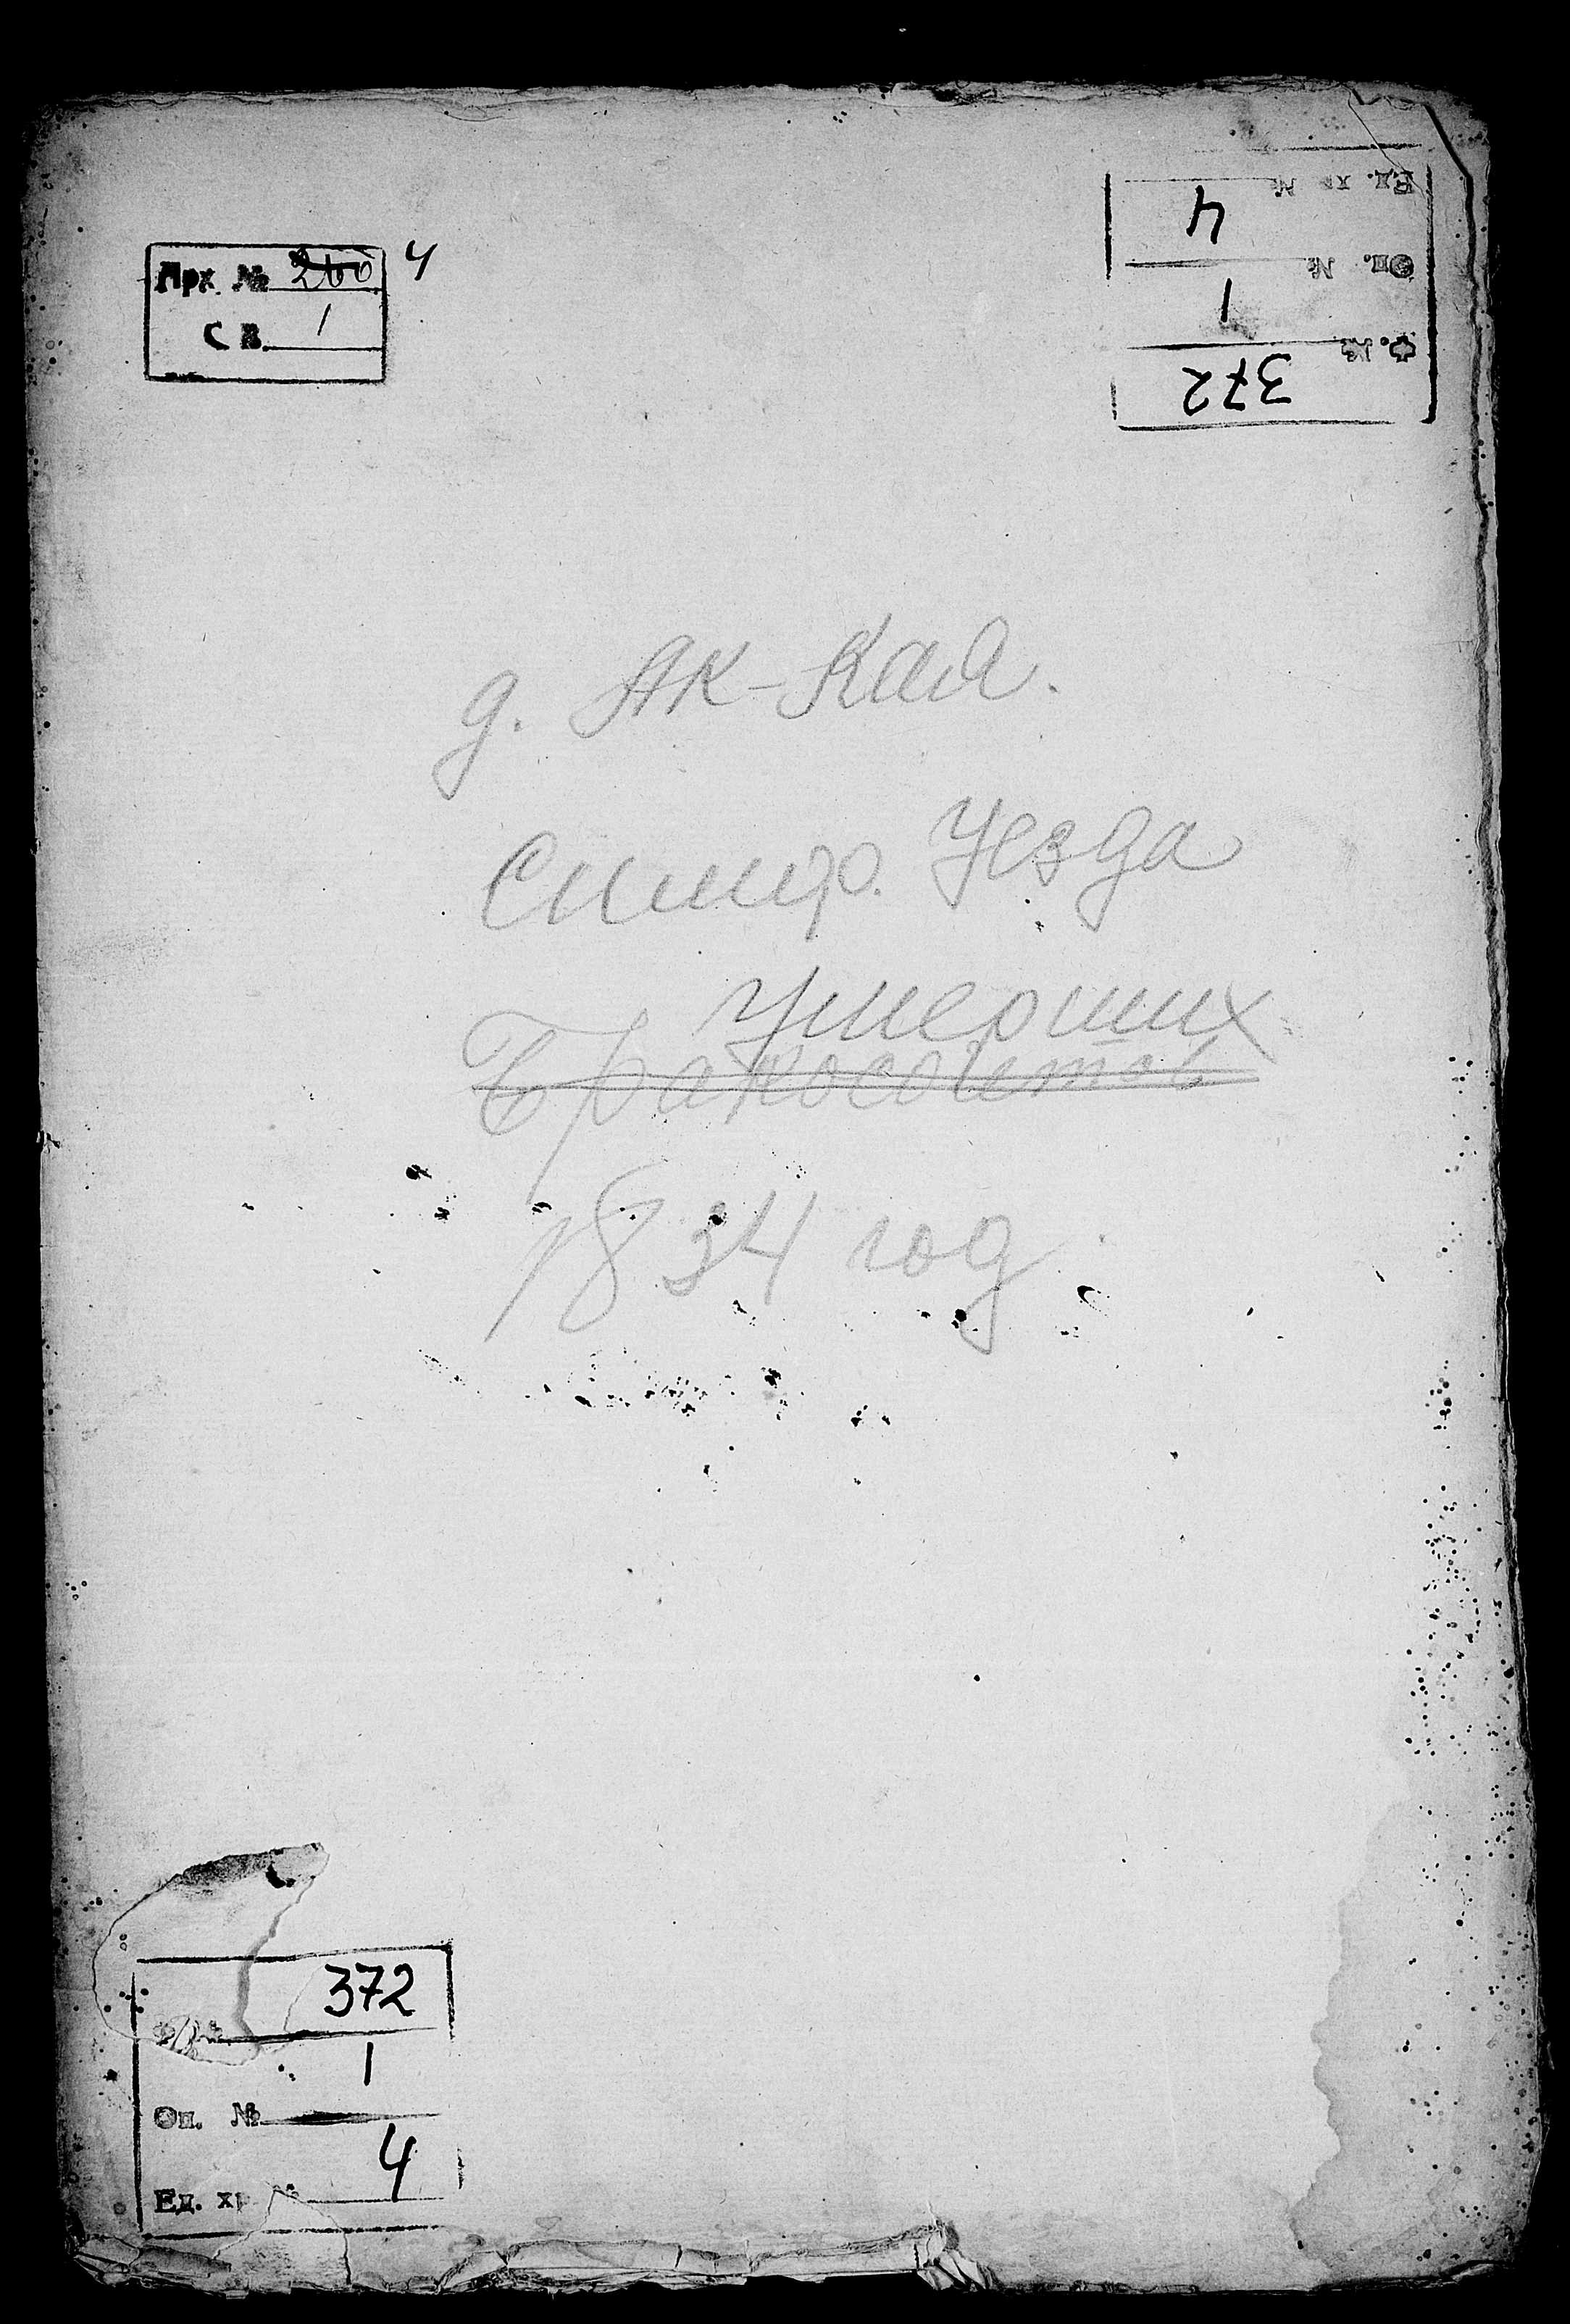 Арх. № 200 4
Св. 1
Ед. хр №
4
Оп. №
1
Ф. №
372
д. Ак-Кая.
Симф. Уезда
Умерших
Бракосочетов
1834 год
372
1
Оп. №
4
Ед. хр №